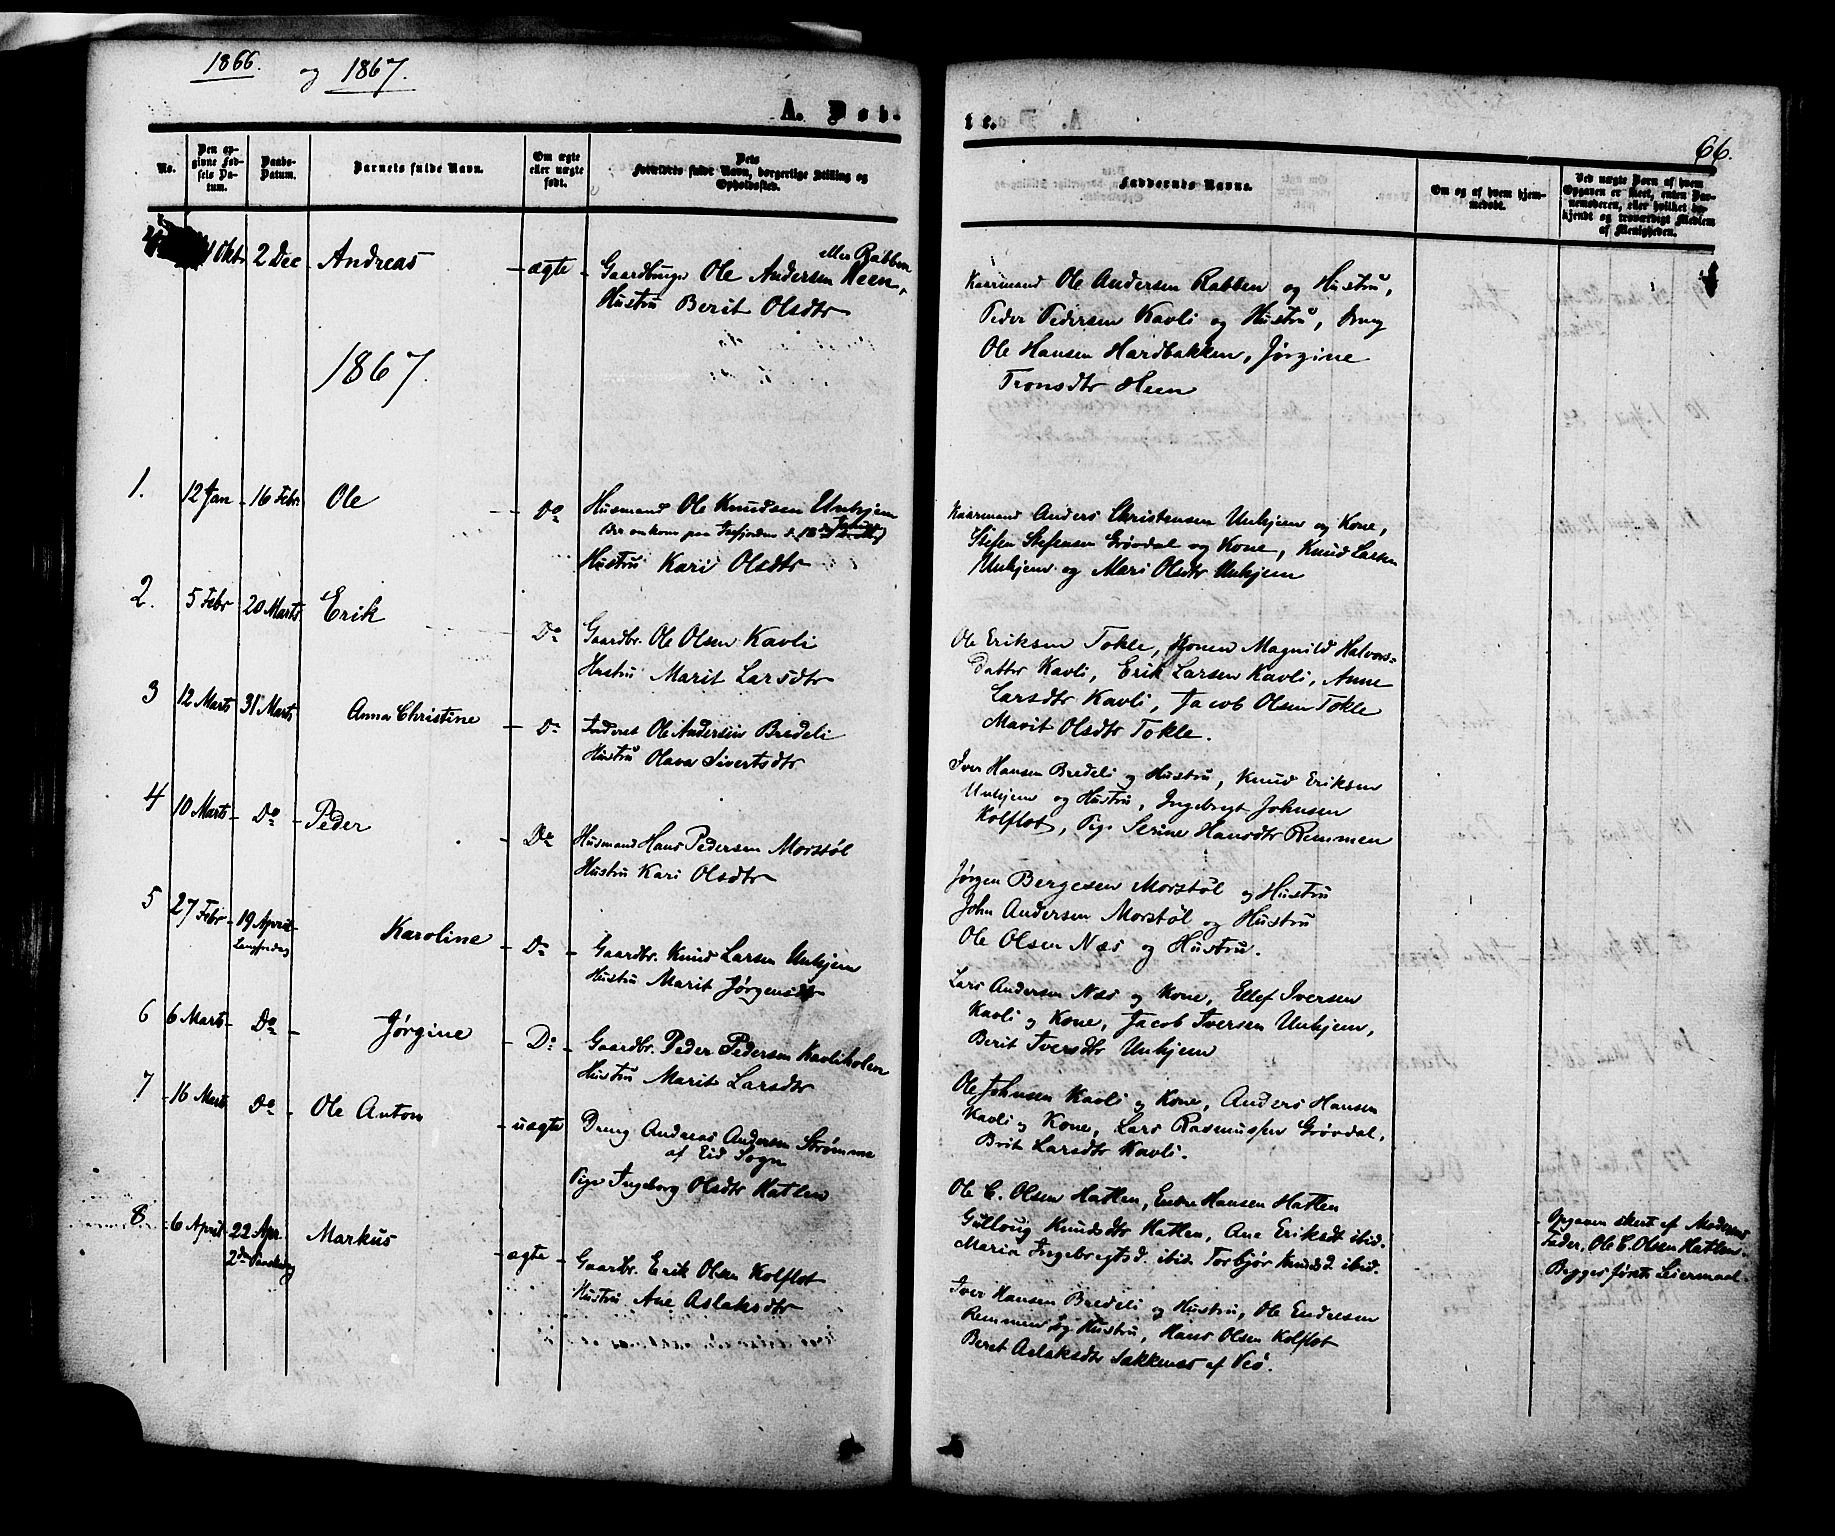 1866. og 1867.
A. Døb-
te.
66.
No.
Den op-
givne Fød-
sels Da-
tum.
Daabs-
Datum.
Barnets fulde Navn.
Om ægte
eller uægte
født.
Dets
Forældres fulde Navn, borgerlige Stilling og
Opholdssted.
Faddernes Navne.
Om og af hvem hjem-
medøbt.
Ved uægte Børn af hvem
Opgaven er skeet, enten Bar-
nemoderen, eller hvilket be-
kjendt og troværdigt Medlem
af Menigheden.
Okt 2 Dec Andreas - ægte - Gaardbruger Ole Andersen Heen, eller Rabben
Hustru Berit Olsdtr
Kaarmand Ole Andersen Rabben og Hustru,
Peder Pedersen Kavli og Hustru, Dreng
Ole Hansen Hardbakken, Jørgine
Tronsdtr Heen
1867.
1. 12 Jan - 16 Febr Ole Do Husmand Ole Knudsen Unhjem
der omkom paa Isfjorden d. 18 Januar
Hustru Kari Olsdtr
Kaarmand Anders Christensen Unhjem og Kone,
Stefen Stefensen Grøvdal og Kone, Knud Larsen
Unhjem og Mari Olsdtr Unhjem
2. 5 Febr 20 Marts Erik Do Gaardbr. Ole Olsen Kavli
Hustru Marit Larsdtr
Ole Eriksen Tokle, Konen Magnild Halvors-
datter Kavli, Erik Larsen Kavli, Anne
Larsdtr Kavli, Jacob Olsen Tokle
Marit Olsdtr Tokle.
3 12 Marts 31 Marts Anna Christine - Do Inderst Ole Andersen Bredeli
Hustru Olava Sivertsdtr
Iver Hansen Bredeli og Hustru, Knud Eriksen
Unhjem og Hustru, Ingebregt Johnsen
Kolflot, Pige Serine Hansdtr Remmen
4 10 Marts - Do - Peder - Do Husmand Hans Pedersen Morstøl
Hustru Kari Olsdtr
Jørgen Bergesen Morstøl og Hustru
John Andersen Morstøl og Hustru
Ole Olsen Næs og Hustru.
5 27 Febr - 19 April Langfredag Karoline - Do - Gaardbr. Knud Larsen Unhjem
Hustru Marit Jørgensdtr
Lars Andersen Næs og Kone, Ellef Iversen
Kavli og Kone, Jacob Iversen Unhjem,
Berit Iversdtr Unhjem
6 6 Marts - Do - Jørgine - Do - Gaardbr. Peder Pedersen Kavliholen
Hustru Marit Larsdtr
Ole Johnsen Kavli og Kone, Anders Hansen
Kavli og Kone, Lars Rasmussen Grøvdal,
Brit Larsdtr Kavli.
7 - 16 Marts Do - Ole Anton - uægte Dreng Andreas Andersen Strømme
af Eid Sogn
Pige Ingeborg Olsdtr Hatlen
Ole C. Olsen Hatlen, Endre Hansen Hatlen
Gulloug Knudsdtr Hatlen, Ane Eriksdt ibid.
Maria Ingebregtsd. ibid. Torbjør Knudsd. ibid.
- Opgaven skeet af Moderens
Fader, Ole C. Olsen Hatlen.
Begges første Leiermaal
8 - 6 April - 22 Apr 2den Paaskedag Markus - ægte - Gaardbr. Erik Olsen Kolflot
Hustru Ane Aslaksdtr
Iver Hansen Bredeli og Hustru, Ole Endresen
Remmen og Hustru, Hans Olsen Kolflot
Beret Aslaksdtr Sækkenæs af Veø.